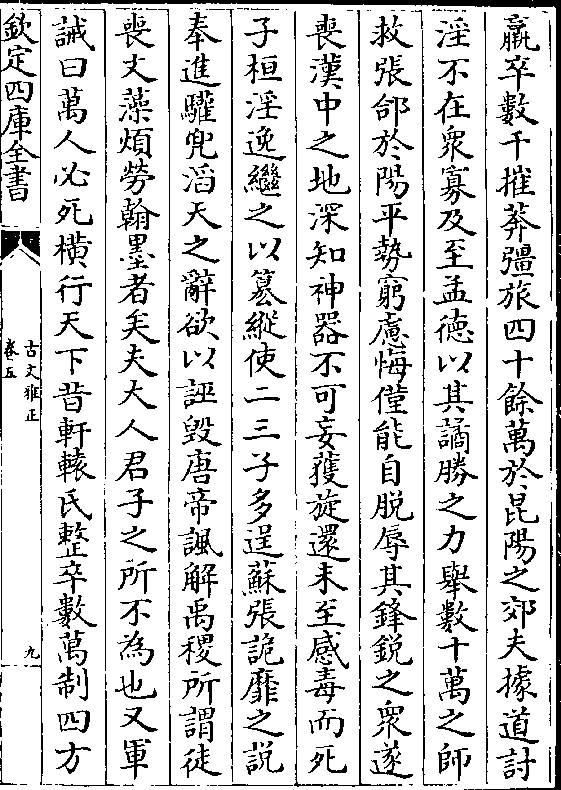 羸卒數千摧莽彊旅四十餘萬於昆陽之郊夫據道討
淫不在衆寡及至孟德以其譎勝之力舉數十萬之師
救張郃於陽平勢窮慮悔僅能自脫辱其鋒銳之衆遂
喪漢中之地深知神器不可妄獲旋還未至感毒而死
子桓淫逸繼之以簒縱使二三子多逞蘇張詭靡之說
奉進驩兜滔天之辭欲以誣毀唐帝諷解禹稷所謂徒
喪文藻煩勞翰墨者矣夫大人君子之所不為也又軍
誡曰萬人必死橫行天下昔軒轅氏整卒數萬制四方
欽定四庫全書
古文雅正
卷五
九